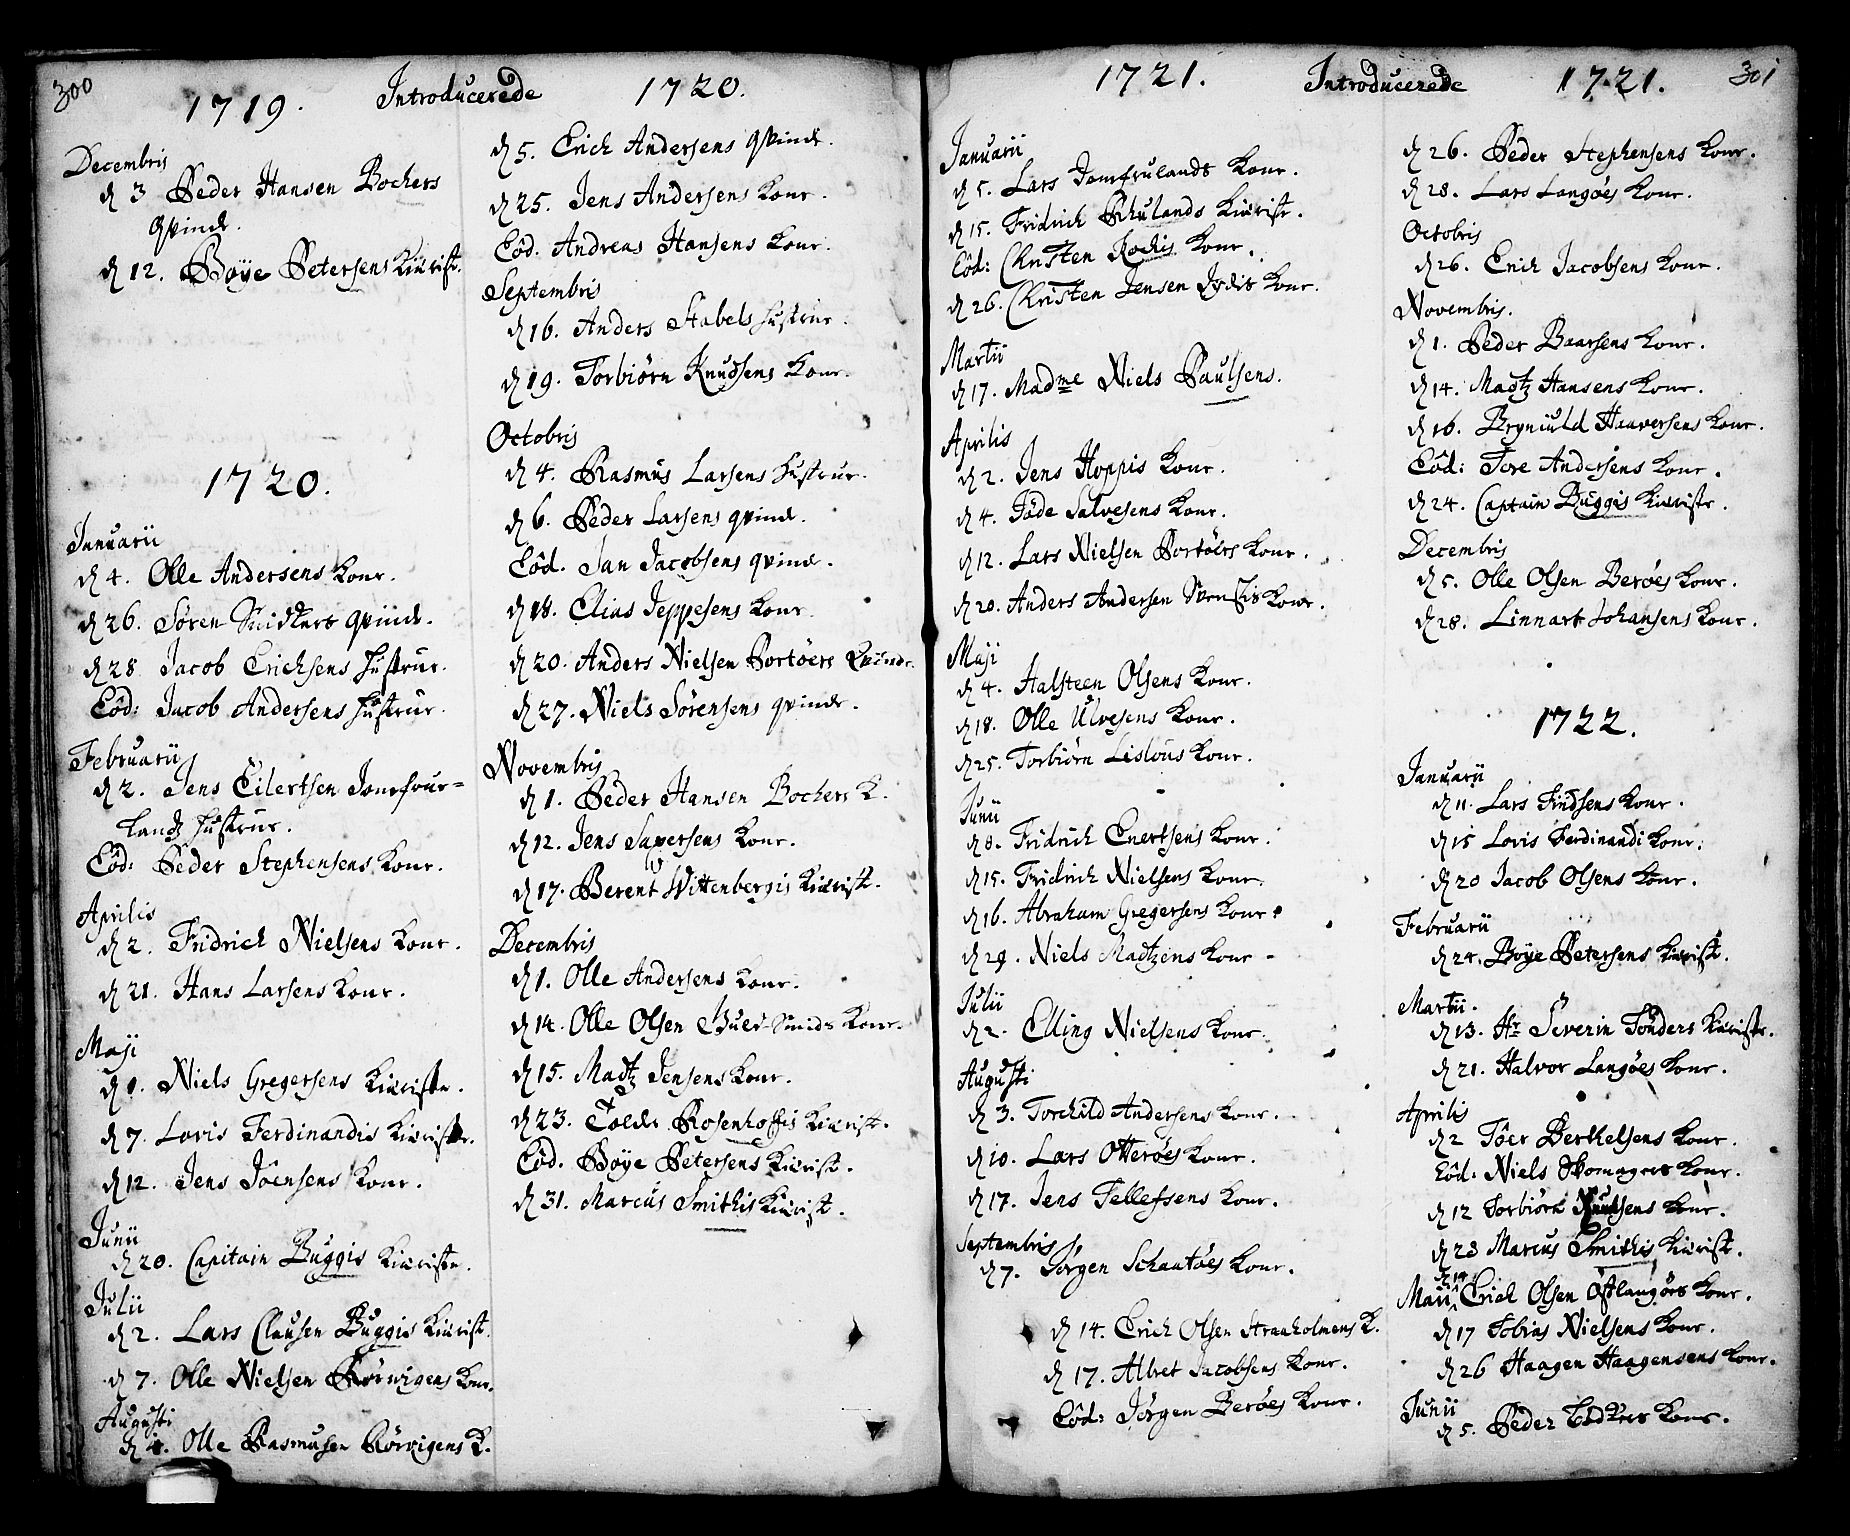 300
1719.
Introducerede
1720.
Decembris
d 3 Peder Hansen Bochers
qvinde.
d 12. Boye Petersens Kiæriste.
1720.
Januarii
d 4. Olle Andersens Kone.
d 26. Sören Snidkers qvinde.
d 28 Jacob Erichsens Hustrue.
Eôd: Jacob Andersens Hustrue.
Februarii
d 2. Jens Eilertsen Jomfrue=
landz Hustrue.
Eôd: Peder Stephensens Kone.
Aprilis
d 2. Fridrich Nielsens Kone.
d 21. Hans Larsens Kone.
Maji
d 1. Niels Gregersens Kiæriste.
d 7. Lovis Ferdinandis Kiæriste.
d 12. Jens Jöensens Kone.
Junii
d 20. Capitain Buggis Kiæriste.
Julii
d 2. Lars Clausen Buggis Kiærist.
d 7. Olle Nielsen Rörvigens Kone.
Augusti
d 4. Olle Rasmusen Rörvigens K.
d 5. Erich Andersens qvinde.
d 25. Jens Andersens Kone.
Eôd. Andreas Hansens Kone.
Septembris
d 16. Anders Stabels Hustrue.
d 19. Torbiörn Knudsens Kone.
Octobris
d 4. Rasmus Larsens Hustrue.
d 6. Peder Larsens qvinde.
Eôd. Jan Jacobsens qvinde.
d 18. Elias Jeppesens Kone.
d 20. Anders Nielsen Portöers Qvinde.
d 27. Niels Sörensens qvinde.
Novembris
d 1. Peder Hansen Bochers K.
d 12. Jens Sapersens Kone.
d 17. Berent Wittenbergis Kiærist.
Decembris
d 1. Olle Andersens Kone.
d 14. Olle Olsen Guld-Smids Kone.
d 15. Madtz Jensens Kone.
d 23. Colds Rosenhoffis Kiærist.
Eôd. Boye Petersens Kiærist.
d 31. Marcus Smithis Kiærist.
1721.
Introducerede
1721.
301
Januarii
d 5. Lars Jomfrulands Kone.
d 15. Fridrich Rhulands Kiæriste.
Eôd: Christen Kochis Kone.
d 26. Christen Jensen Jydes Kone.
Martii
d 17. Madme Niels Paulsens.
Aprilis
d 2. Jens Hoppis Kone.
d 4. Jöde Salvesens Kone.
d 12. Lars Nielsen Portöers Kone.
d 20. Anders Andersen Svenskis Kone.
Maji
d 4. Halsteen Olsens Kone.
d 18. Olle Ulvesens Kone.
d 25. Torbiörn Lislöus Kone.
Junii
d 8. Fridrich Enertsens Kone.
d 15. Fridrich Nielsens Kone.
d 16. Abraham Gregersens Kone.
d 29. Niels Madtzens Kone
Julii
d 2. Elling Nielsens Kone.
Augusti
d 3. Torchild Andersens Kone.
d 10. Lars Otteröes Kone.
d 17. Jens Tellefsens Kone.
Septembris
d 7. Jörgen Schaatöes Kone.
d 14. Erich Olsen Straaholmens K.
d 17. Albret Jacobsens Kone.
Eôd: Jörgen Beröes Kone.
d 26. Peder Stephensens Kone.
d 28. Lars Langöes Kone.
Octobris
d 26. Erich Jacobsens Kone.
Novembris.
d 1. Peder Baarsens Kone.
d 14. Madtz Hansens Kone.
d 16. Bryniuld Haaversens Kone.
Eôd: Tore Andersens Kone.
d 24. Captain Buggis Kiæriste.
Decembris
d 5. Olle Olsen Beröes Kone.
d 28. Linnart Johansens Kone.
1722.
Januarii
d 11. Lars Fridsens Kone.
d 15 Lovis Ferdinandi Kone.
d 20 Jacob Olsens Kone.
Februarii
d 24. Boye Petersens Kiærist.
Martii.
d 13. Hr Severin Tönders Kiæriste.
d 21. Halvor Langöes Kone.
Aprilis
d 2 Töer Berthelsens Kone.
Eôd: Niels Skomagers Kone.
d 12 Torbiörn Knudsens Kone.
d 28 Marcus Smithis Kiærist.
d 14.
Maii Erich Olsen Östlangöes Kone.
d 17 Tobias Nielsens Kone.
d 26 Haagen Haagensens Kone.
Junii
d 5. Peder Bödkers Kone.